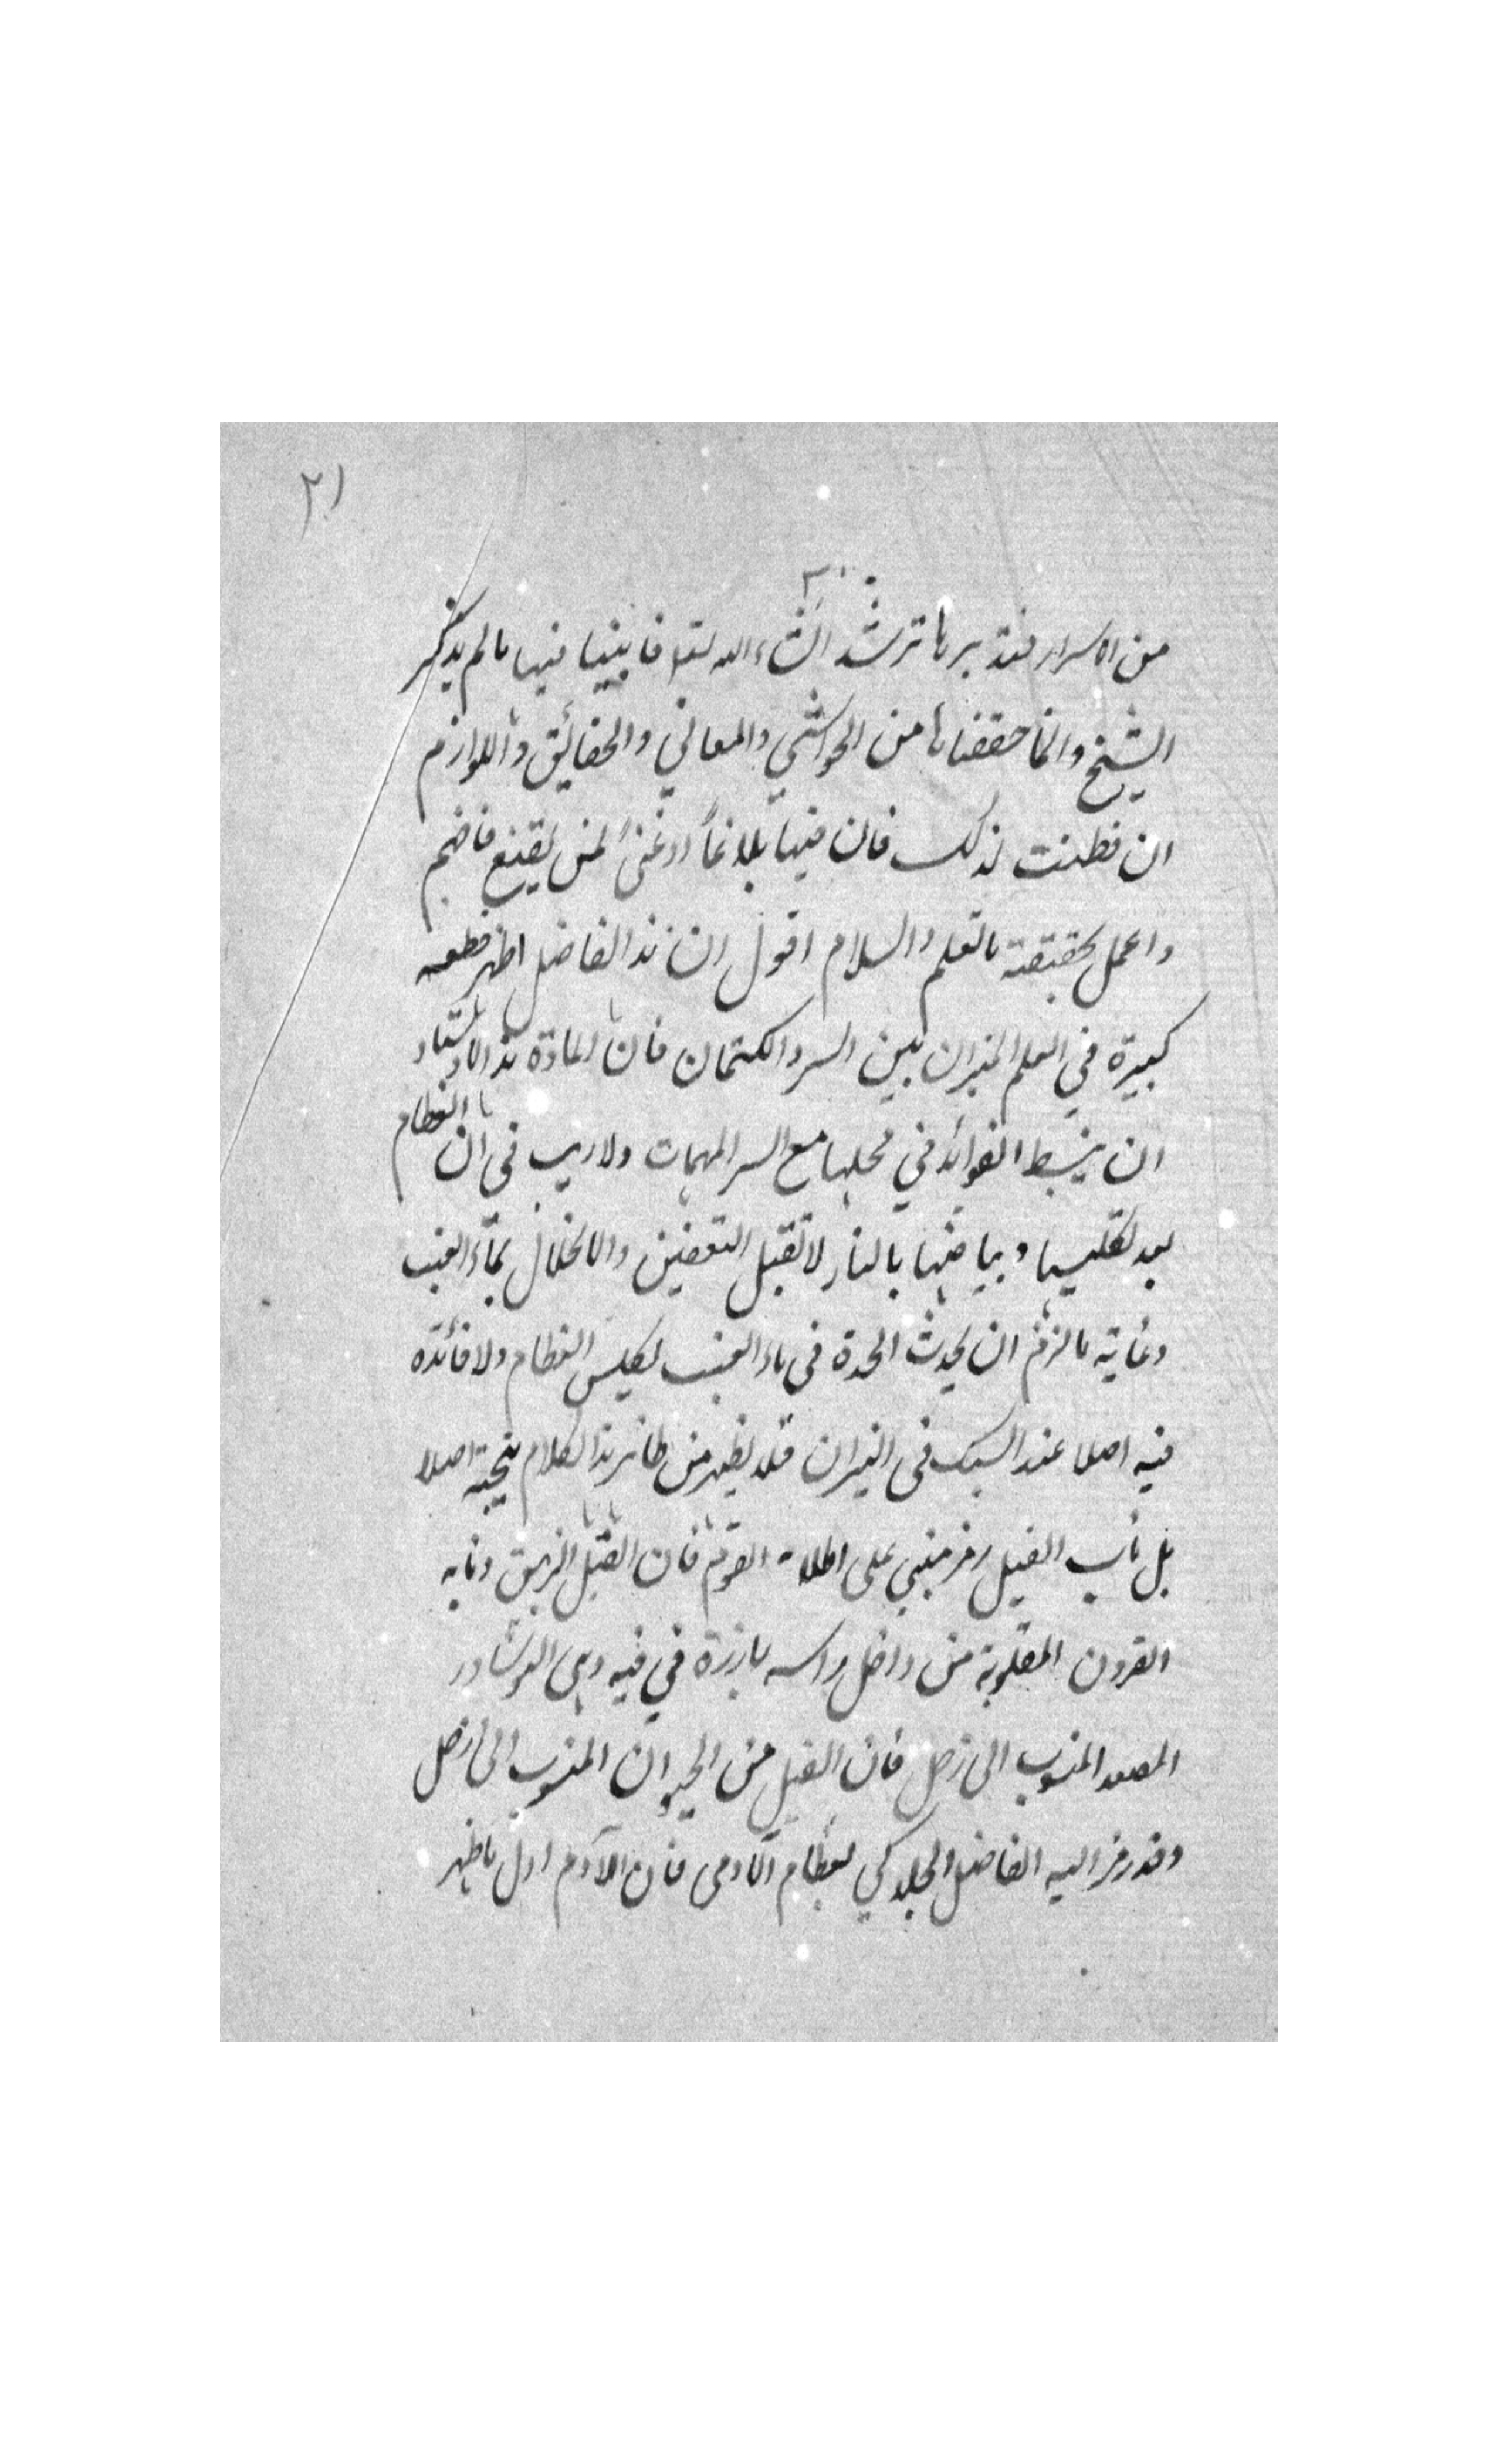 ٢١
من الاسرار فتدبرها ترشد انشاء الله تعا فابيننا فيها ما لم يذكر
الشيخ وانما حققناها من الحواشي والمعاني والحقائق واللوازم
ان فطنت لذلك فان فيها بلاغاً وغنىً لمن يقنع فافهم
واعمل بحقيقة ما تعلم والسلام اقول ان هذا الفاضل اظهر قطعه
كبيرة في العلم الميزان بين السر والكتمان فان المادة هذا الاستاد
ان يبسط الفوائد في محلها مع السر المهمات ولا ريب في ان العظام
بعد تكليسها وبياضها بالنار لا تقبل التعفين والانحلال بماء العنب
وغاية ما لزم ان يحدث الحدة في ماء العنب لكلس العظام ولا فائده
فيه اصلا عند السبك في النيران فلا يظهر من ظاهر هذا الكلام نتيجة اصلا
بل ناب الفيل رمز مبني على القوم فان الفيل الزيبق ونابه
القرون المقلوبة من داخل راسه بارزة في فيه وهى النوشادر
المصعد المنسوب الى زحل فان الفيل من الحيوان المنسوب الى زحل
وقد رمز اليه الفاضل الجلدكي بعظام الآدمى فان الآدم اول ما ظهر